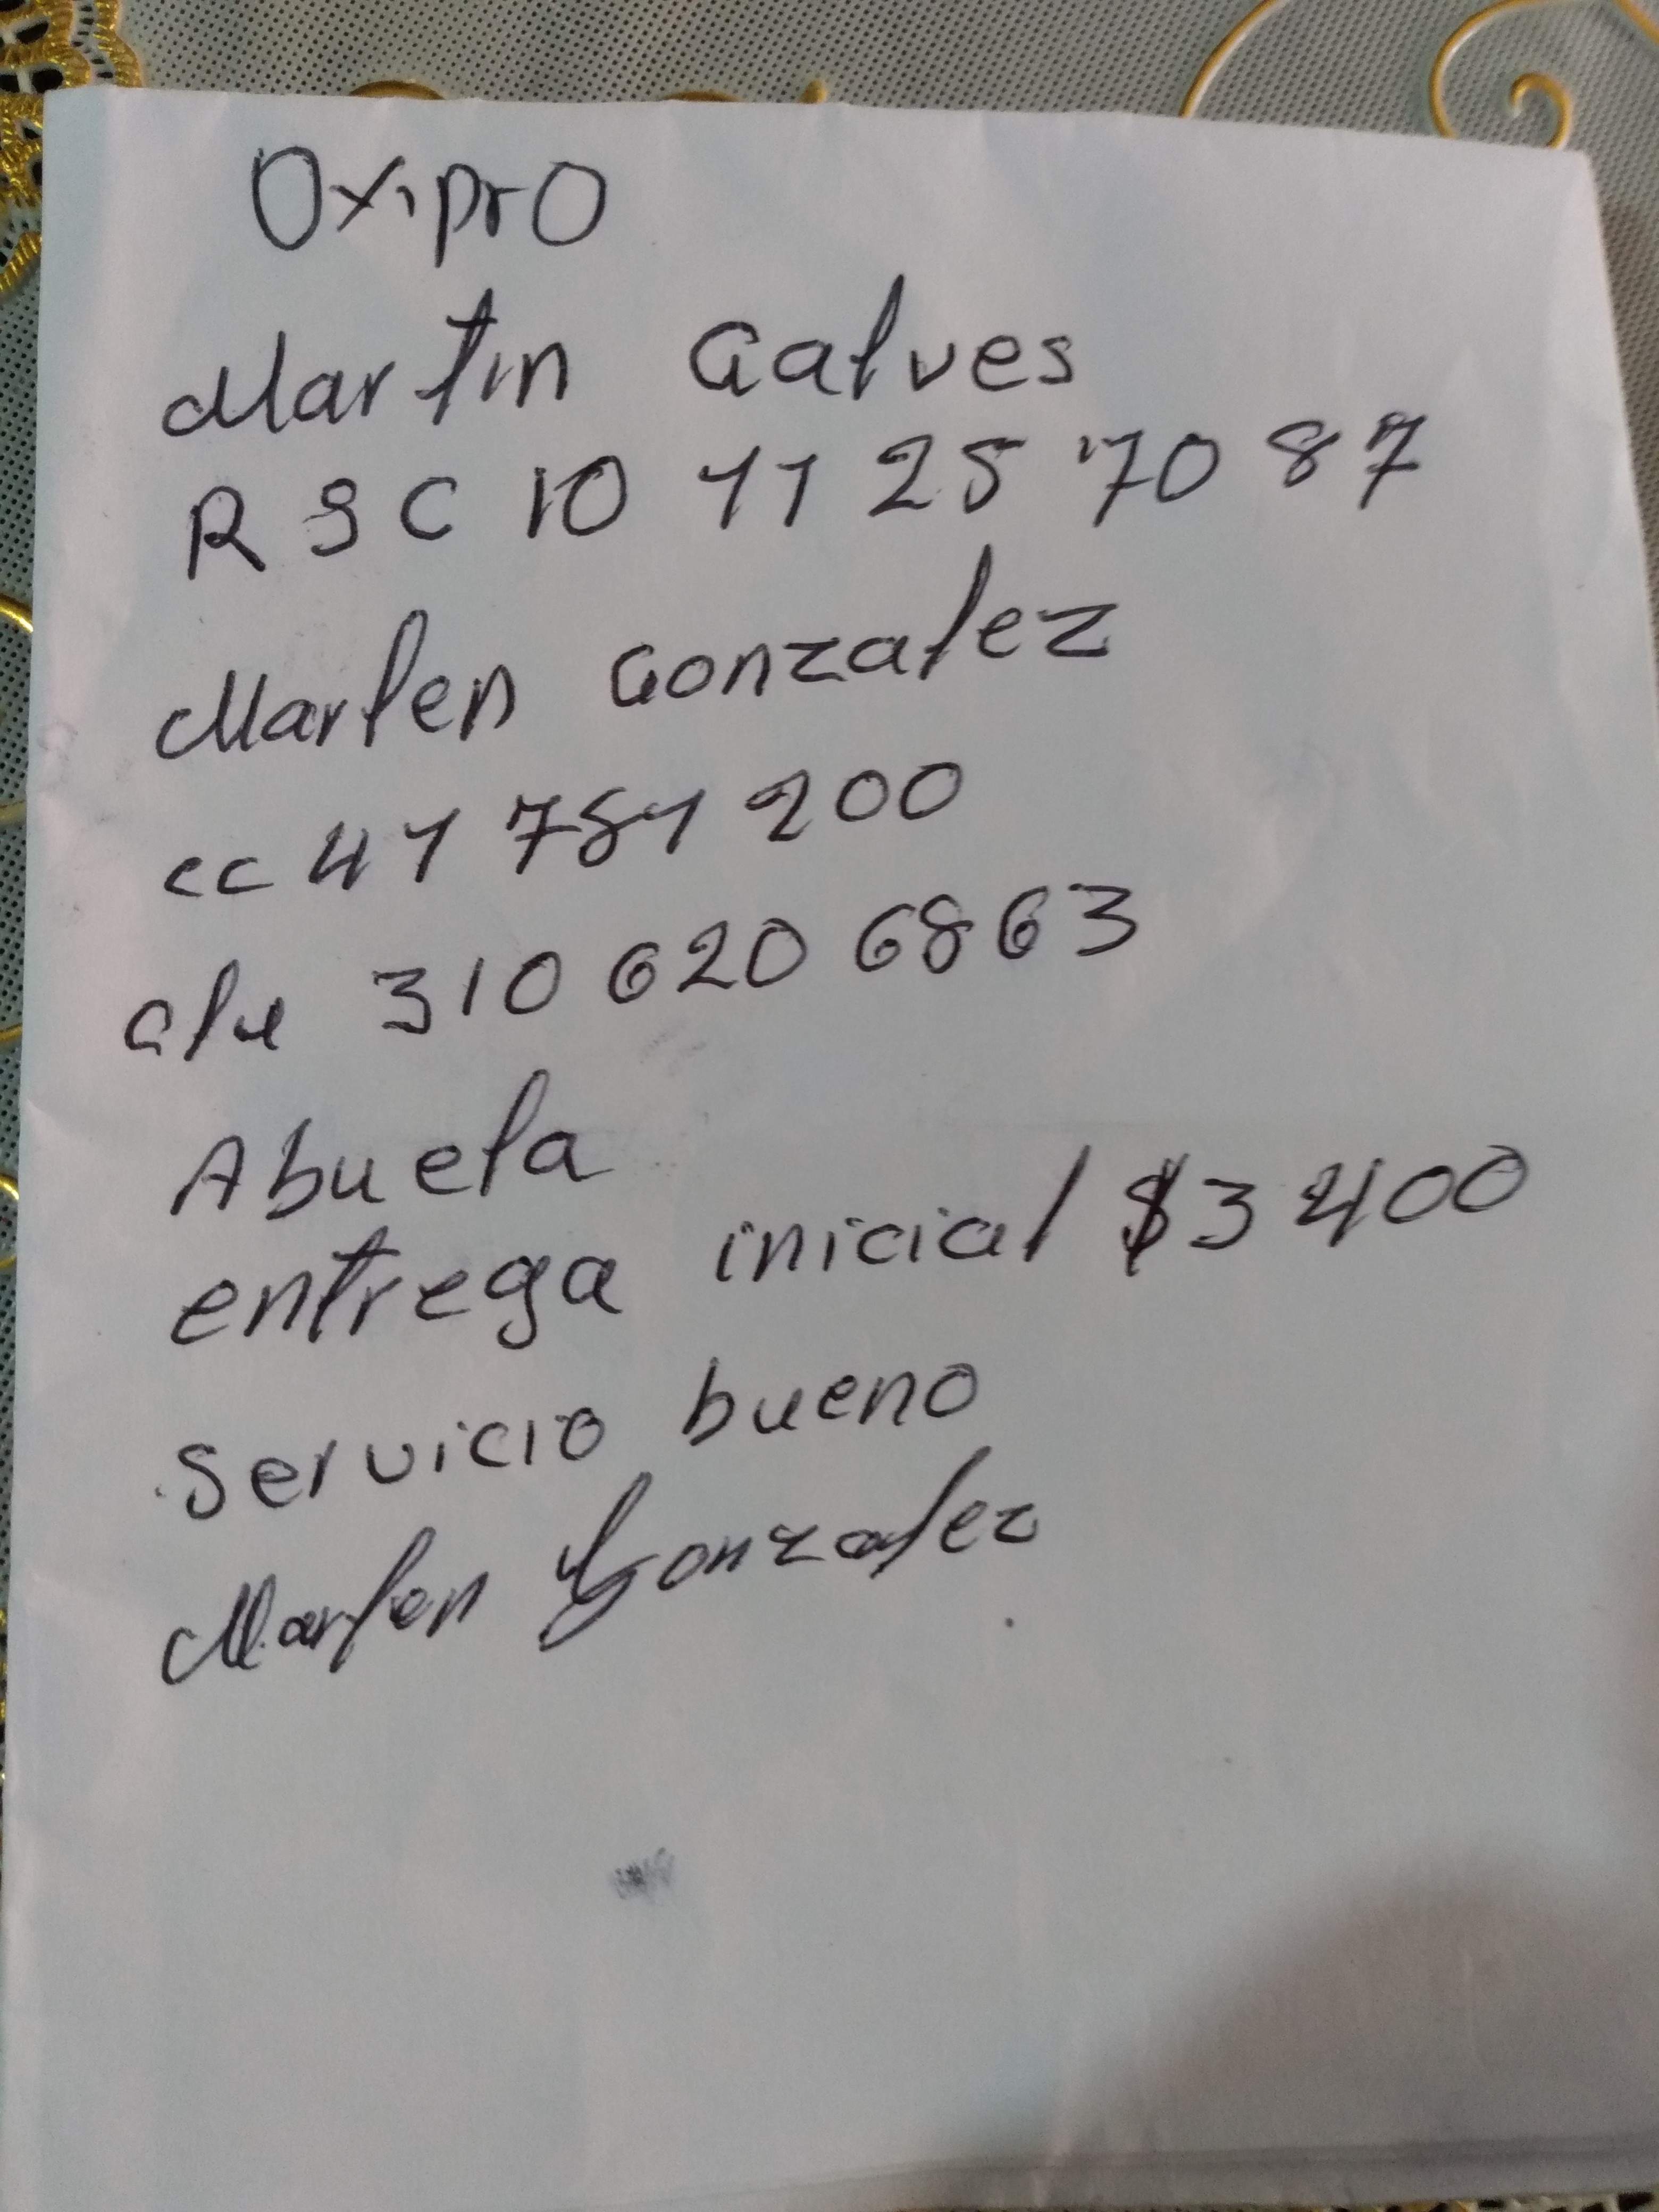 Oxipro
Martin Galves
RSC 10 11 25 70 87
Marlen Gonzalez
cc 41 781 200
310 620 6863
Abuela
entrega inicial $3400
Servicio bueno
Marlen Gonzalez